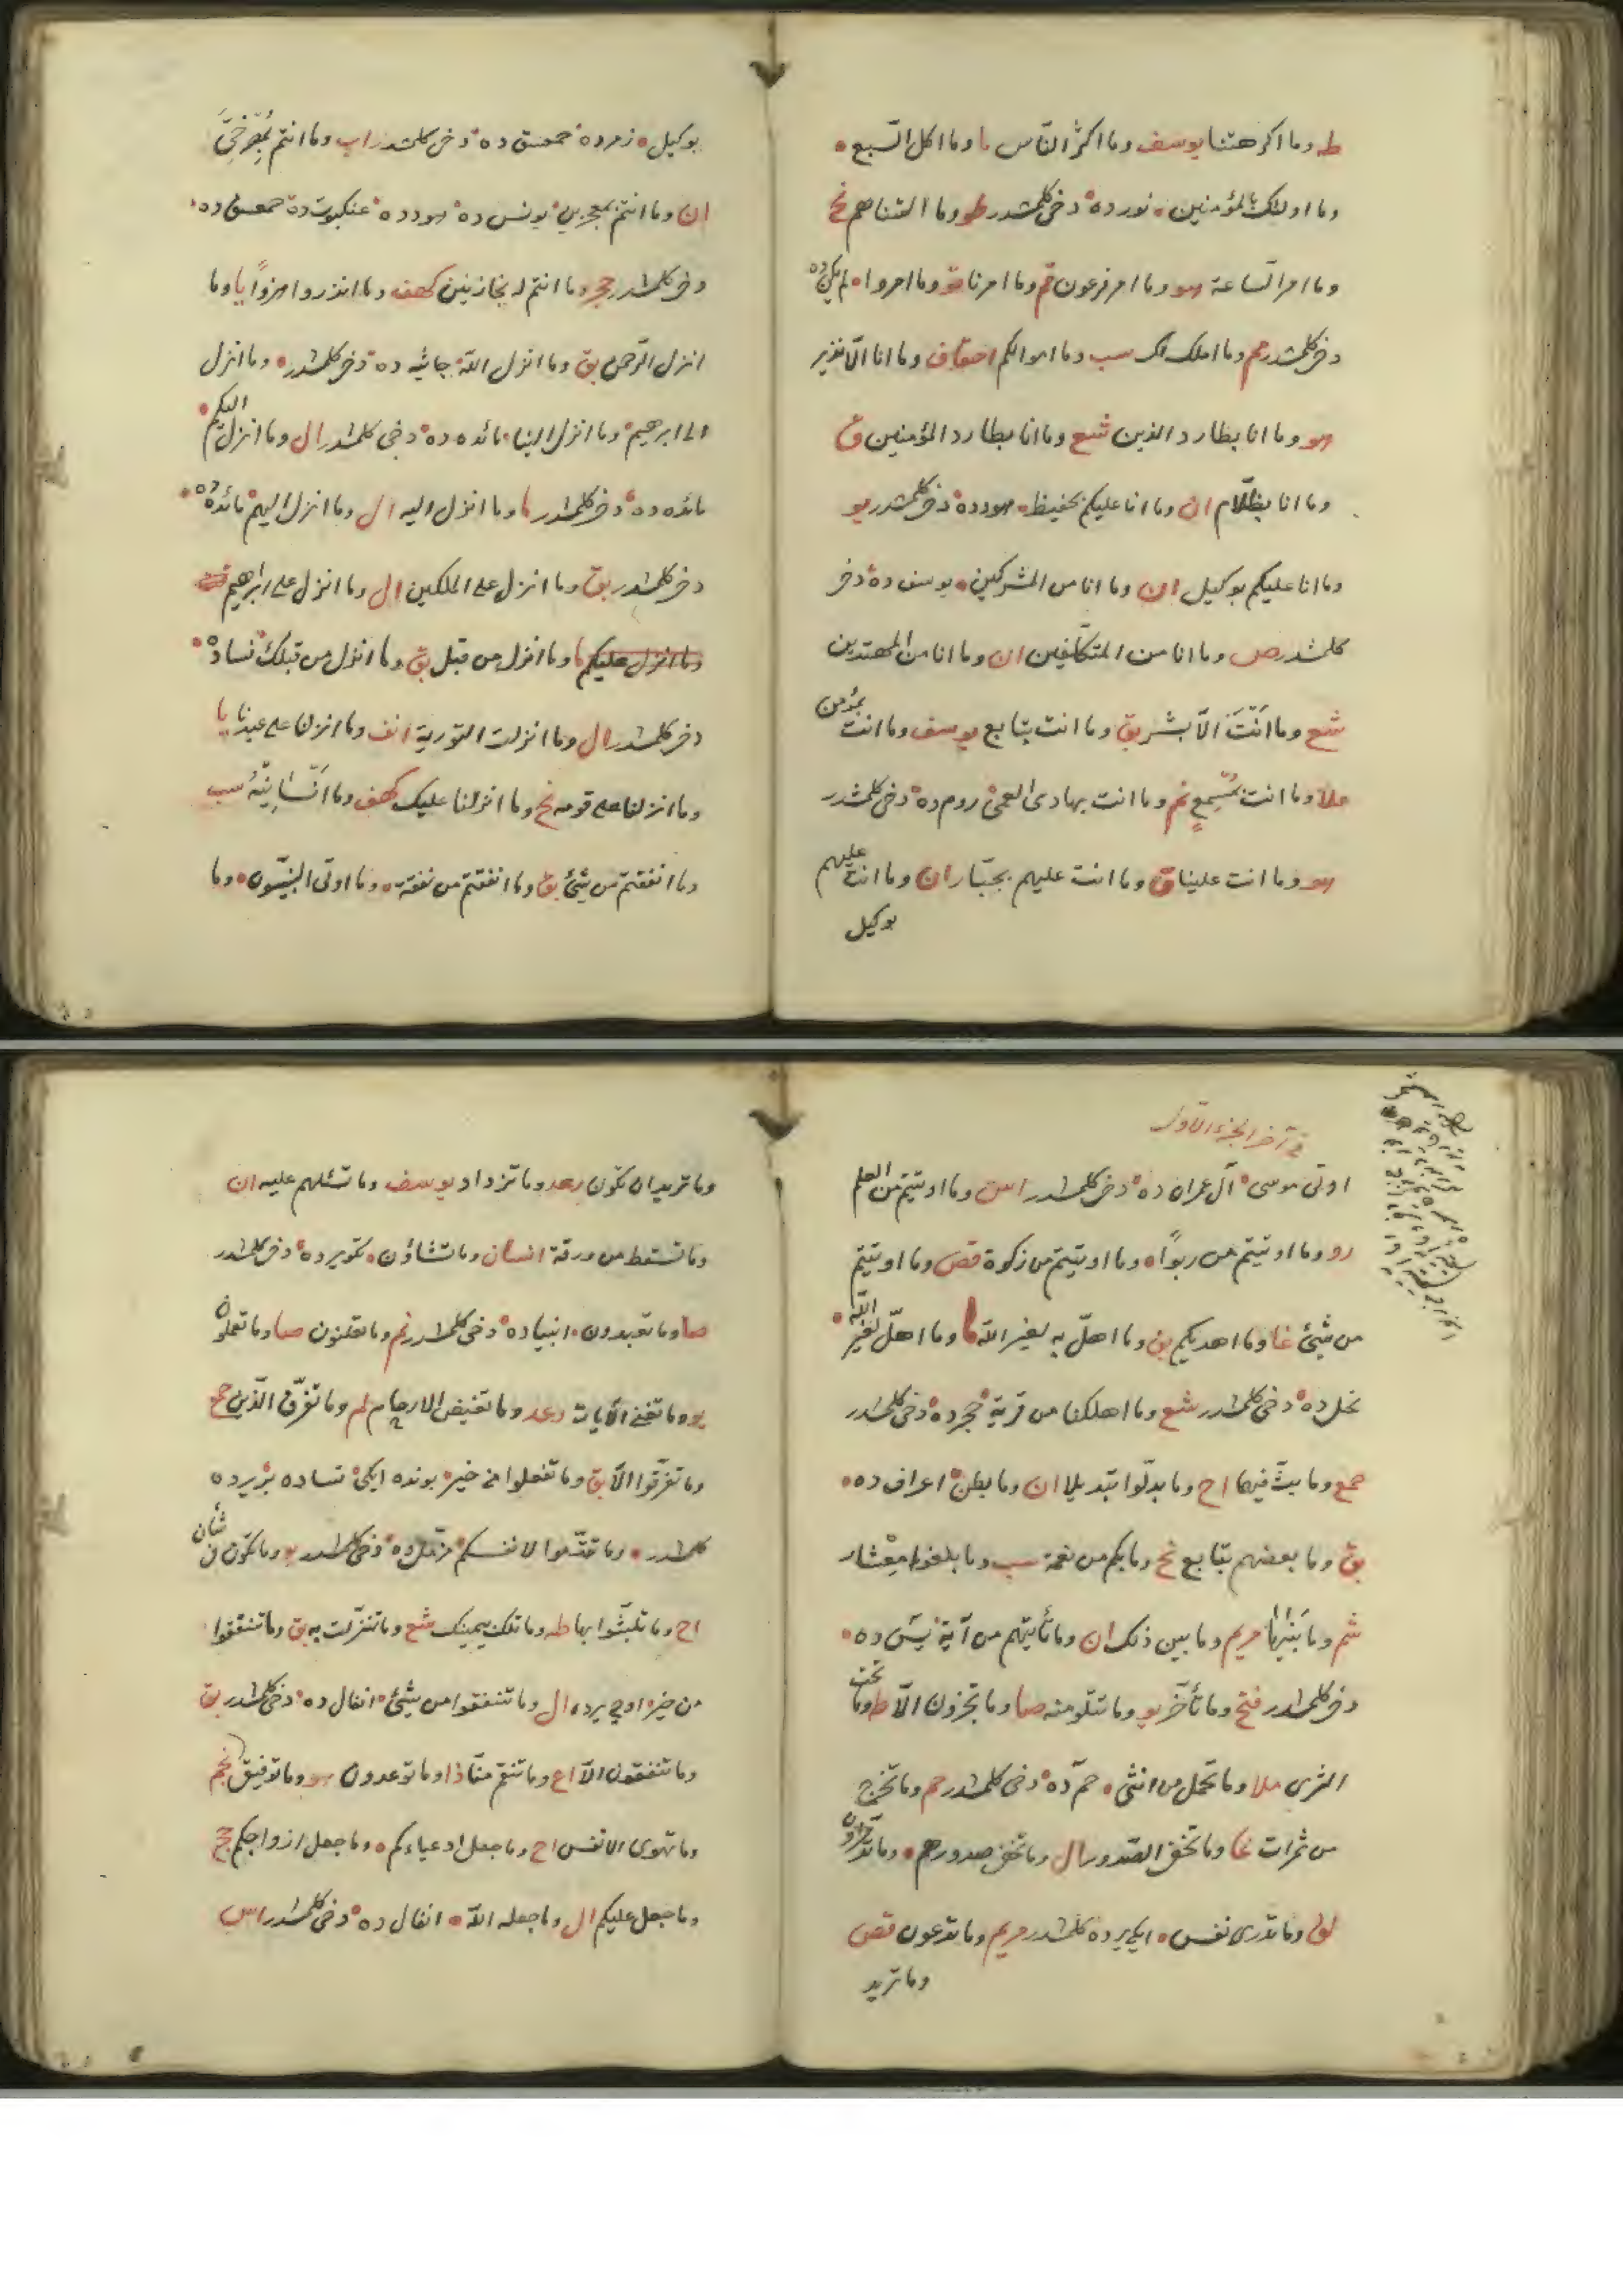 طه وما اكرهتنا يوسف وما اكثر الناس ما وما اكل السبع
وما اولئك بالمؤمنين نورده دخى كلمشدر طو وما التناهم نح
وما امر الساعة هو وما امر فرعون قم وما امرنا وما امروا لم يكن ده
دخى كلمشدر مم وما املك لك سب وما اموالكم احقاف وما انا الا نذير
هو وما انا بطارد الذين شع وما انا بطارد المؤمنين ق
وما انا بظلام ان وما انا عليكم بحفيظ هودده دخى كلمشدر يو
وما انا عليكم بوكيل ان وما انا من المشركين يوسف ده دخى
كلمشدر ص وما انا من المتكلفين ان وما انا من المهتدين
شع وما انت الا بشر بق وما انت بتابع يوسف وما انت بمؤمن
ملا وما انت بمسمع نم وما انت بهادى العمى روم ده دخى كلمشدر
هو وما انت علينا ق وما انت عليهم بجبار ان وما انت عليهم
بوكيل
بوكيل زمرده حمعسق ده دخى كلمشدر اب وما انتم بمصرخى
ان وما انتم بمعجزين يونس ده هودده عنكبوت ده حمعسق ده
دخى كلمشدر حجر وما انتم له بخازنين كهف وما انذروا هزوا يا وما
انزل الرحمن بق وما انزل الله جاثيه ده دخى كلمشدر وما انزل
الى ابرهيم وما انزل الينا مائده ده دخى كلمشدر ال وما انزل اليكم
مائده ده دخى كلمشدر ما وما انزل اليه ال وما انزل اليهم مائده ده
دخى كلمشدر بق وما انزل على الملكين ال وما انزل على ابرهيم
وما انزل عليكم ما وما انزل من قبل بق وما انزل من قبلك نساده
دخى كلمشدر ال وما انزلت التورية انف وما انزلنا على عبدنا يا
وما انزلنا على قومه نح وما انزلنا عليك كهف وما انسانيه سب
وما انفقتم من شئ بق وما انفقتم من نفقة وما اوتى النبيون وما
فى آخر الجزء الاول
اوتى موسى آل عمران ده دخى كلمشدر اس وما اوتيتم من العلم
رو وما اوتيتم من ربوا وما اوتيتم من زكوة قص وما اوتيتم
من شئ غا وما اهديكم بق وما اهل به لغير الله ما وما اهل لغير الله
نحل ده دخى كلمشدر شع وما اهلكنا من قرية حجرده دخى كلمشدر
حمع وما بث فيهما اح وما بدلوا تبديلا ان وما بطن اعراف ده
بق وما بعضهم بتابع نح وما بكم من نعمة سب وما بلغوا معشار
شم وما بنيها مريم وما بين ذلك ان وما تأتيهم من آية يس ده
دخى كلمشدر فتح وما تأخر يو وما تتلو منه صا وما تجزون الا طه وما تحت
الثرى ملا وما تحمل من انثى حم ده دخى كلمشدر حم وما تخرج
من ثمرات غا وما تخفى الصدور ال وما تخفى صدورهم وما تدخرون
لق وما تدرى نفس ايكى يرده كلمشدر مريم وما تدعون قص
وما تريد
وما تريد ان تكون رعد وما تزداد يوسف وما تسئلهم عليه ان
وما تسقط من ورقة انسان وما تشاؤن تكويرده دخى كلمشدر
صا وما تعبدون انبياده دخى كلمشدر نم وما تعلنون صا وما تعملون
يو وما تغنى الآيات رعد وما تغيض الارحام لم وما تفرق الذين حمع
وما تفرقوا الا بق وما تفعلوا من خير بونده ايكى نساده بر يرده
كلمشدر وما تقدموا لانفسكم مزمل ده دخى كلمشدر يو وما تكون فى شأن
اح وما تلبثوا بها طه وما تلك بيمينك شع وما تنزلت به بق وما تنفقوا
من خير اوچ يرده ال وما تنفقوا من شئ انفال ده دخى كلمشدر بق
وما تنفقون الا اع وما تنقم منا ذا وما توعدون هو وما توفيقى نجم
وما تهوى الانفس اح وما جعل ادعياءكم وما جعل ازواجكم حج
وما جعل عليكم ال وما جعله الله انفال ده دخى كلمشدر اس